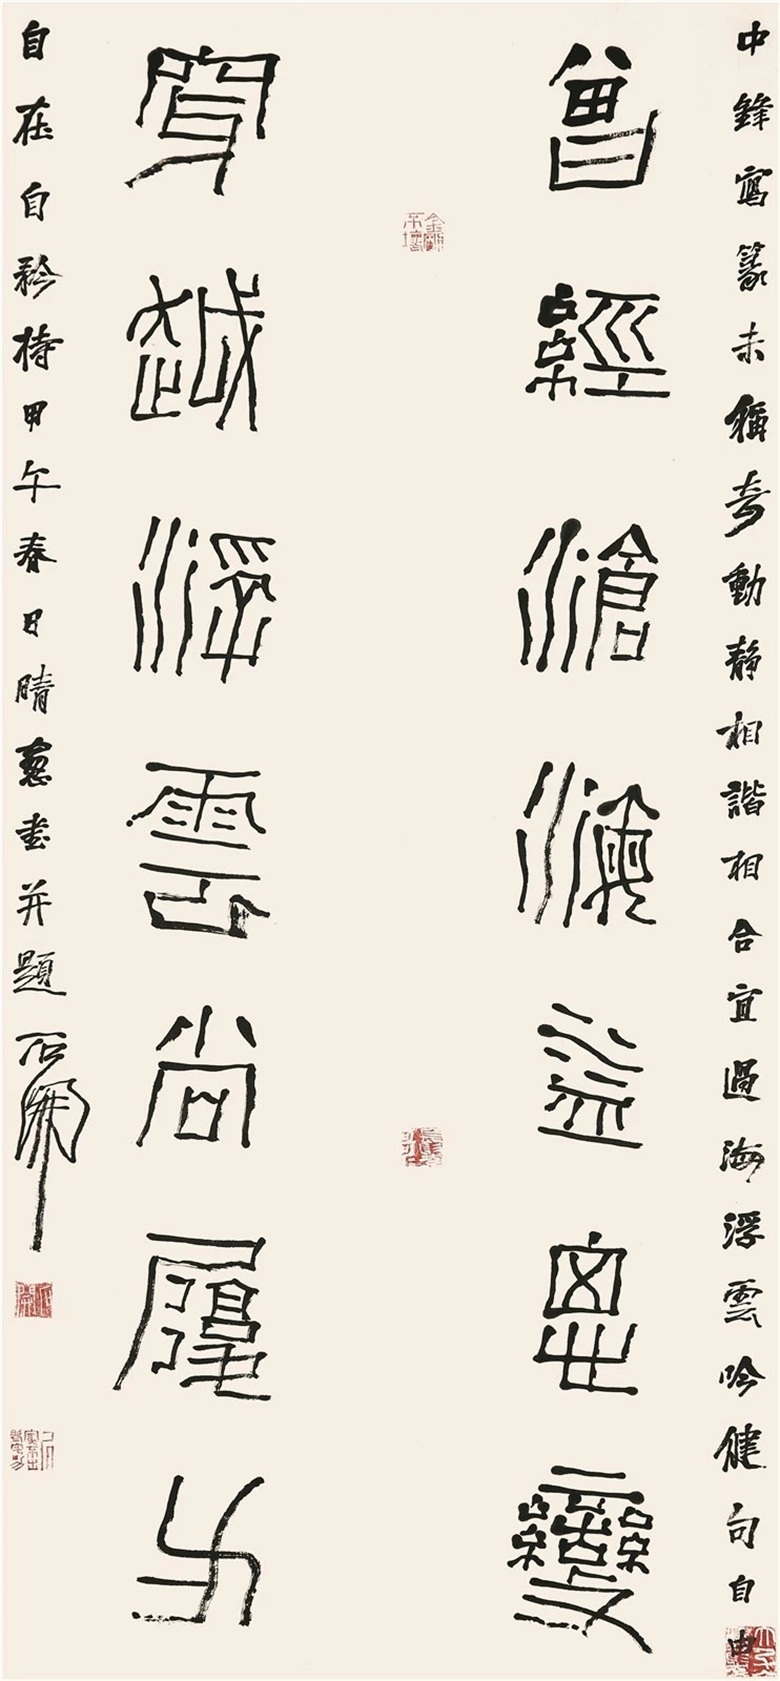 中鋒寫篆未稱奇動靜相諧相合宜過海浮雲吟健句自由
曾經滄海益思變
穿越浮雲尚履
自在自矜持甲午春日晴窻書并題石開